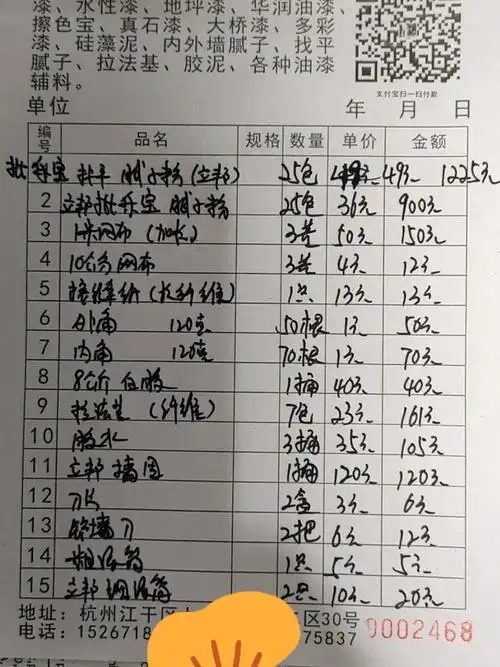 漆、水性漆、地坪漆、华润油漆、
擦色宝、真石漆、大桥漆、多彩
漆、硅藻泥、内外墙腻子、找平
腻子、拉法基、胶泥、各种油漆
辅料。
支付宝扫一扫付款
单位 年 月 日
编号 品名 规格 数量 单价 金额
批释宝 批平 腻子粉(立邦) 25包 49元 1225元
2 立邦批释宝 腻子粉 25包 36元 900元
3 1米网布(加长) 3卷 50元 150元
4 10公分网布 3卷 4元 12元
5 接缝纸(拉纤维) 1只 13元 13元
6 外角 120克 50根 1元 50元
7 内角 120克 70根 1元 70元
8 8公斤 白胶 1桶 40元 40元
9 拉法基(纤维) 7包 23元 161元
10 胶水 3桶 35元 105元
11 立邦 墙固 1桶 120元 120元
12 刀片 2盒 3元 6元
13 铲墙刀 2把 6元 12元
14 1只 5元 5元
15 立邦 滚筒 2只 10元 20元
地址：杭州江干区 区30号
电话：1526718 75837 0002468